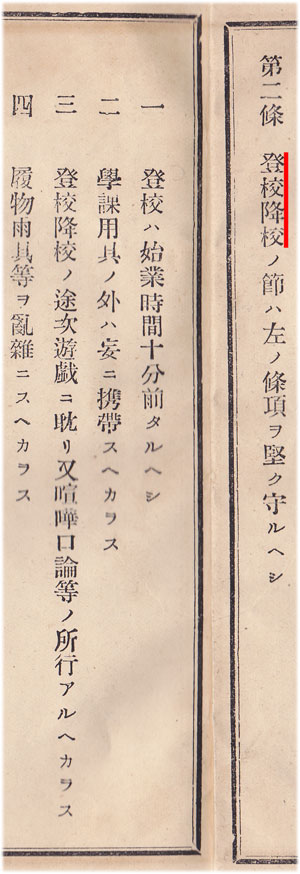 第二條 登校降校ノ節ハ左ノ條項ヲ堅ク守ルヘシ
一 登校ハ始業時間十分前タルヘシ
二 學課用具ノ外ハ妄ニ携帶スヘカラス
三 登校降校ノ途次遊戯ニ耽リ又喧嘩口論等ノ所行アルヘカラス
四 履物雨具等ヲ亂雜ニスヘカラス